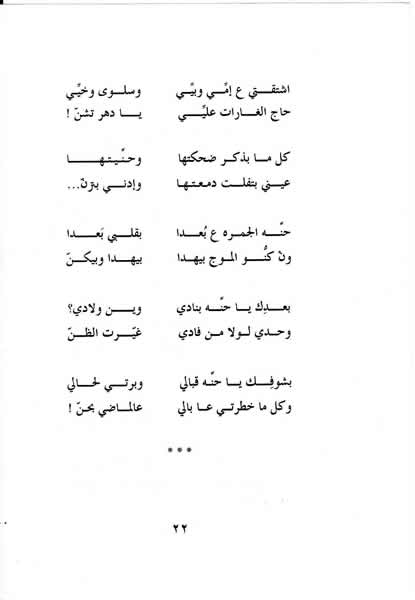 اشتقتي ع إمّي وبيّي وسلوى وخيّي
حاج الغارات عليّي يا دهر تشنّ !
كل ما بذكر ضحكتها وحنّيتها
عيني بتفلت دمعتها وإدني بترنّ...
حنّه الجمره ع بُعدا بقلبي بَعدا
ونْ كنُّو الموج بيهدا بيهدا وبيكنّ
بعدِك يا حنّه بنادي وين ولادي؟
وحدي لولا من فادي غيّرت الظنّ
بشوفِك يا حنّه قبالي وبرتي لحالي
وكل ما خطرتي عا بالي عالماضي بحنّ !
***
٢٢